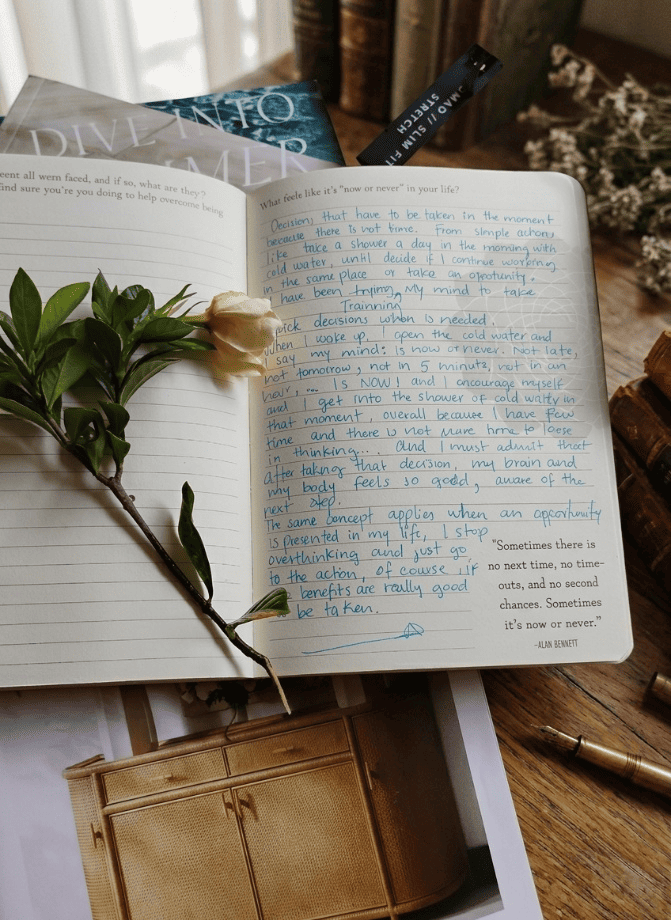 DIVE INTO
MMER
SMAO // SLIM FI
STRETCH
eent all wern faced, and if so, what are they?
find sure you're you doing to help overcome being
What feele like it's "now or never" in your life?
Decision, that have to be taken in the moment
because there is not time. From simple action,
like take a shower a day in the morning with
cold water, until decide if I continue working
in the same place or take an oportunity.
I have been trying, My mind to take
Trainning
quick decisions when is needed.
When I woke up, I open the cold water and
I say my mind: is now or never. Not late,
not tomorrow, not in 5 minute, not in an
hour, ... Is NOW! and I encourage myself
and I get into the shower of cold watty in
that moment, overall because I have few
time and there is not more time to loese
in thinking... and I must admit that
after taking that decision, my brain and
my body feels so good, aware of the
next step.
The same concept applies when an opportunity
is presented in my life, I stop
overthinking and just go
to the action, of course, if
benefits are really good
be taken.
"Sometimes there is
no next time, no time-
outs, and no second
chances. Sometimes
it's now or never."
–ALAN BENNETT